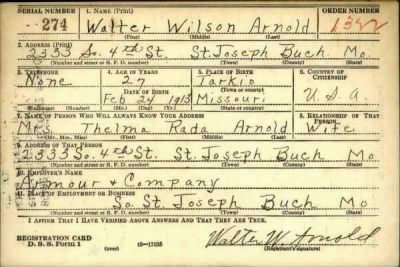 SERIAL NUMBER 1. NAME (Print) ORDER NUMBER
274 Walter Wilson Arnold 1342
(First) (Middle) (Last)
2. ADDRESS (Print)
2333 So. 4th St. St. Joseph Buch Mo
(Number and street or R. F. D. number) (Town) (County) (State)
3. TELEPHONE 4. AGE IN YEARS 5. PLACE OF BIRTH 6. COUNTRY OF CITIZENSHIP
None 27 Tarkio
DATE OF BIRTH (Town or county)
Feb 24 1913 Missouri U.S.A
(Exchange) (Number) (Mo.) (Day) (Yr.) (State or country)
7. NAME OF PERSON WHO WILL ALWAYS KNOW YOUR ADDRESS 8. RELATIONSHIP OF THAT PERSON
Mrs. Thelma Rada Arnold Wife
(Mr., Mrs., Miss) (First) (Middle) (Last)
9. ADDRESS OF THAT PERSON
2333 So. 4th St. St Joseph Buch Mo
(Number and street or R. F. D. number) (Town) (County) (State)
10. EMPLOYER'S NAME
Armour & Company
11. PLACE OF EMPLOYMENT OR BUSINESS
So. St Joseph Buch Mo
(Number and street or R. F. D. number) (Town) (County) (State)
I AFFIRM THAT I HAVE VERIFIED ABOVE ANSWERS AND THAT THEY ARE TRUE.
REGISTRATION CARD
D. S. S. Form 1 16-17105 Walter W. Arnold
(Registrant's signature)